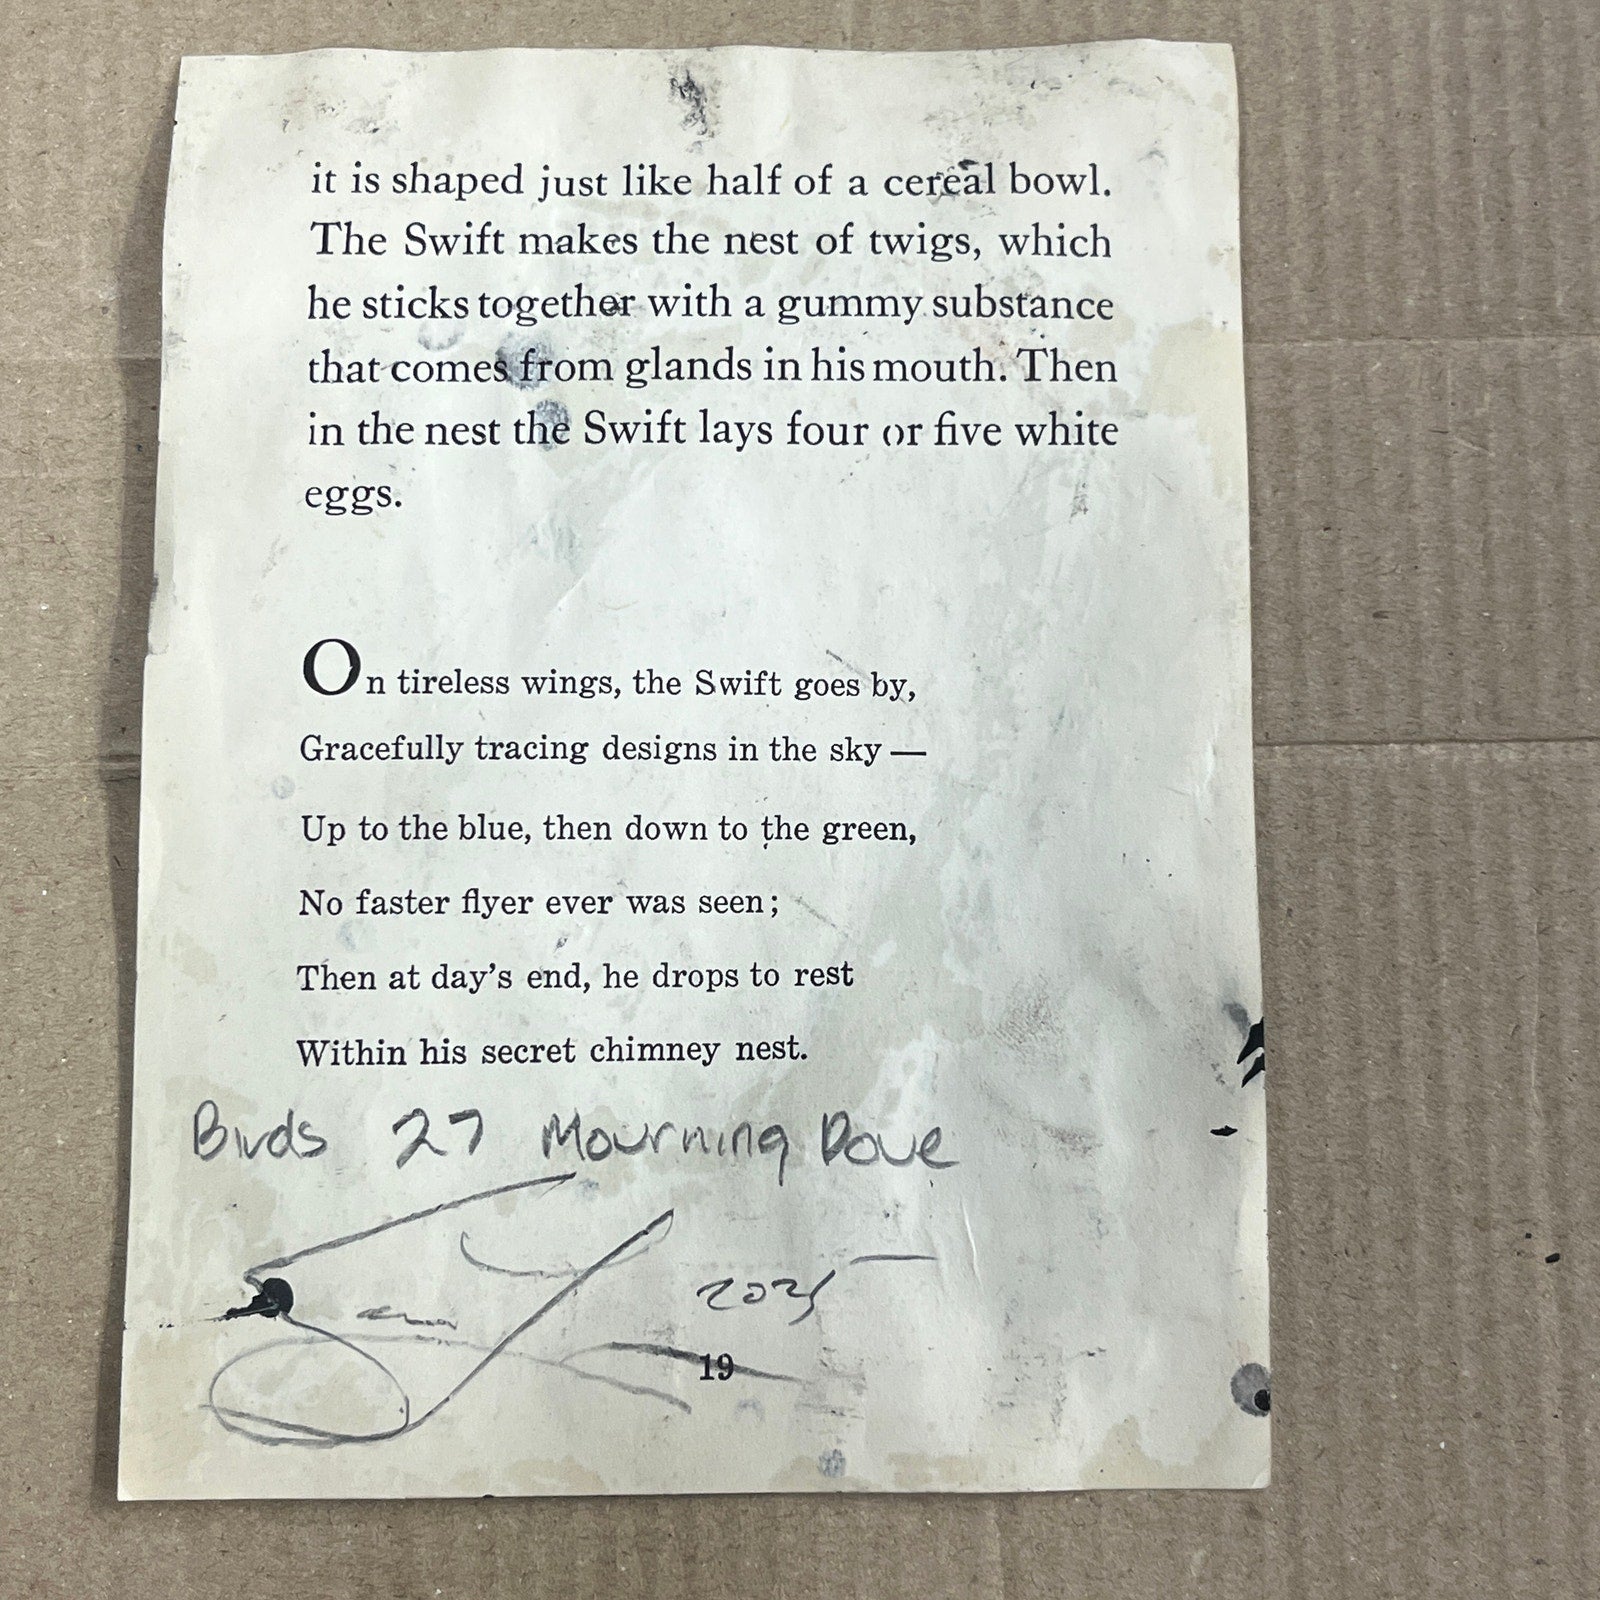 it is shaped just like half of a cereal bowl.
The Swift makes the nest of twigs, which
he sticks together with a gummy substance
that comes from glands in his mouth. Then
in the nest the Swift lays four or five white
eggs.
On tireless wings, the Swift goes by,
Gracefully tracing designs in the sky —
Up to the blue, then down to the green,
No faster flyer ever was seen;
Then at day's end, he drops to rest
Within his secret chimney nest.
Birds 27 Mourning Dove
2025
19